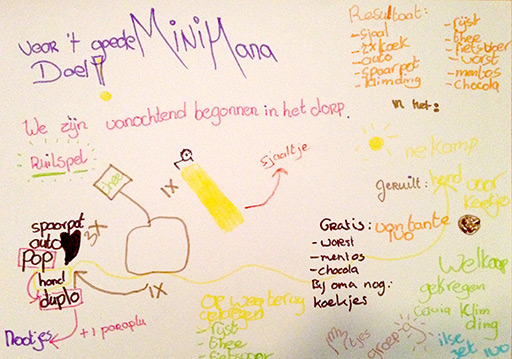 voor 't goede
Doel!
MiniMana
We zijn vanochtend begonnen in het dorp.
Ruilspel
Resultaat:
- sjaal
- 2x koek
- auto
- spaarpot
- klimding
- rijst
- thee
- fietspomp
- worst
- mentos
- chocola
in het:
ne kamp
geruild: hond voor
koetjes
sjaaltje
1x
thee
spaarpot
auto
pop
3x
hond
duplo
1x
Nootjes
+ 1 paraplu
Gratis: van tante
ivo
- worst
- mentos
- chocola
Bij oma nog:
koekjes
Op weg terug
gekregen
- rijst
- thee
Welkoop
gekregen
Klim
ding
groep
ilse